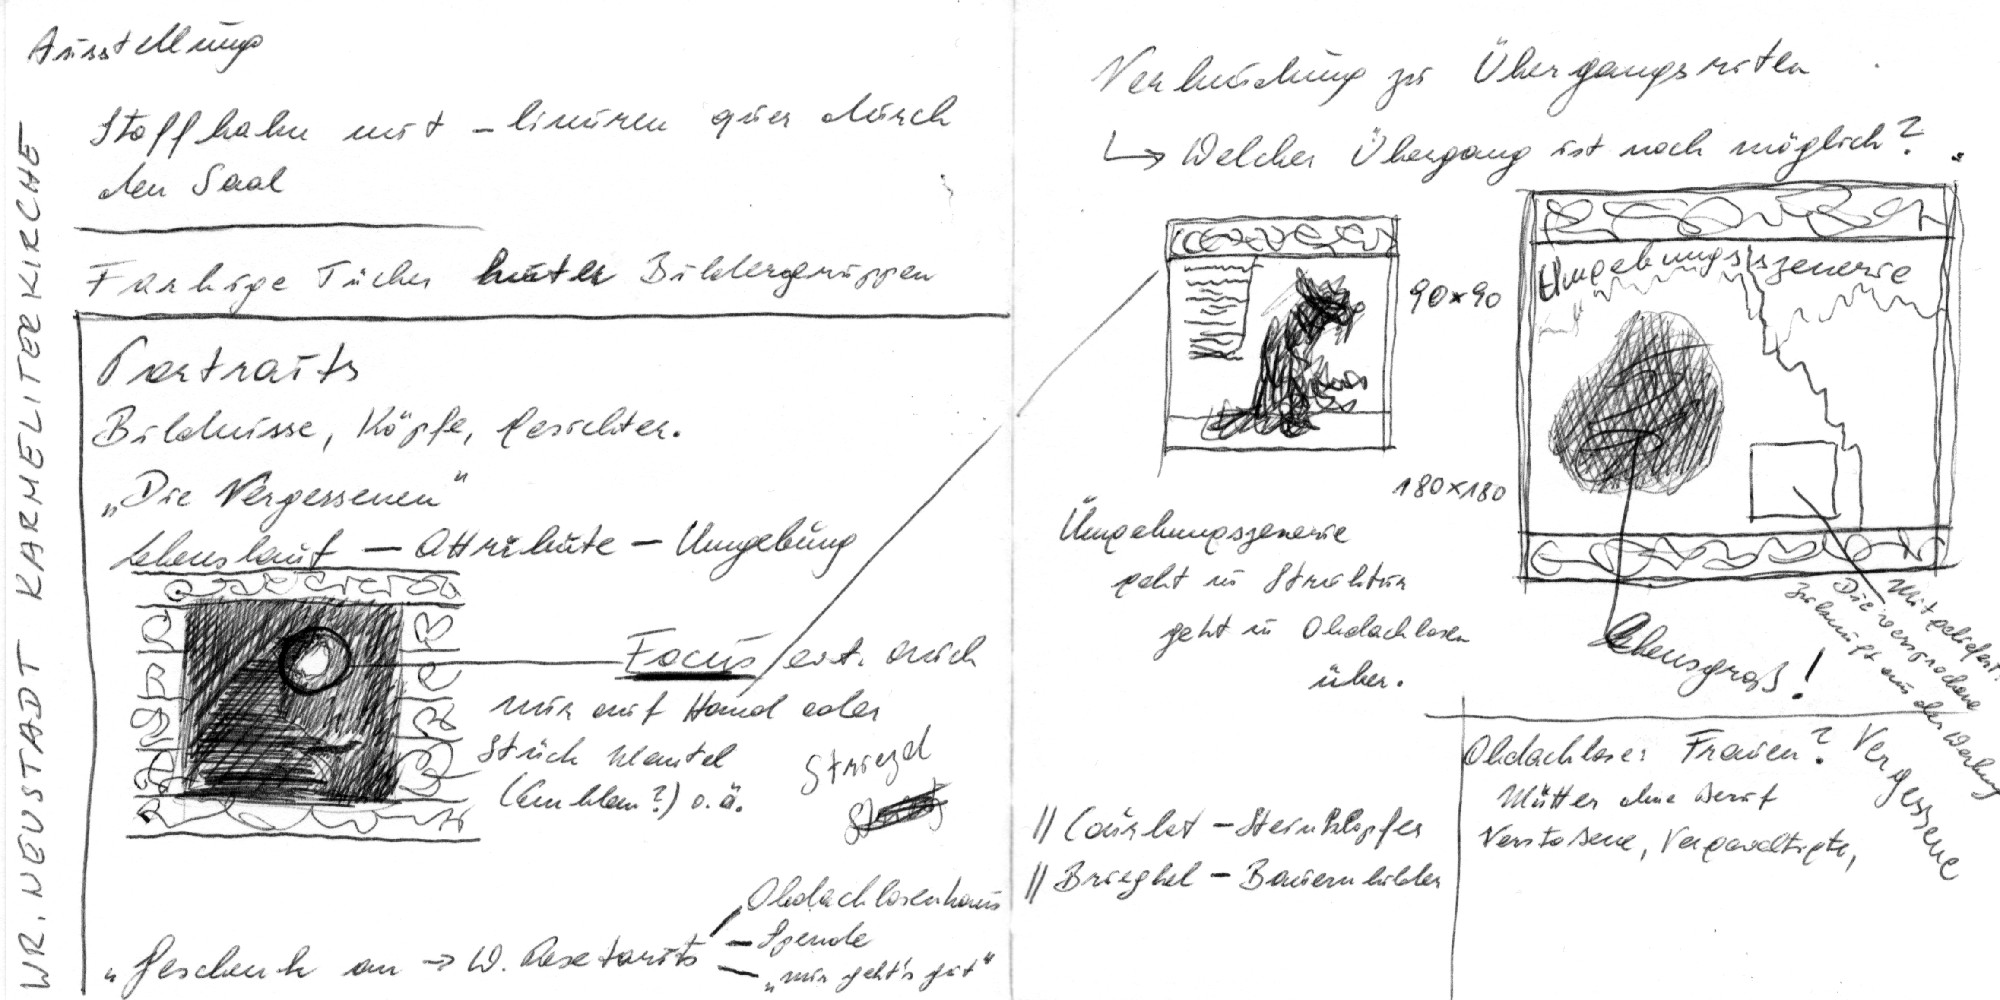 WR. NEUSTADT KARMELITERKIRCHE
Ausstellung
Stoffbahn mit – linuren quer durch
den Saal
Farbige Tücher hinter Bildergruppen
Portraits
Bildnisse, Köpfe, Gesichter.
„Die Vergessenen"
Lebenslauf – Attribute – Umgebung
Focus evt. auch
nur auf Hand oder
Stück Mantel
(Emblem?) o.ä.
Striegl
„Geschenk an → W. Resetarits
Obdachlosenhaus
– Spende
– „mir geht's gut"
Verbindung zu Übergangsriten
↳ Welcher Übergang ist noch möglich?
90×90
Umgebungsszenerie
180×180
Umgebungsszenerie
geht in Struktur
geht in Obdachlosen
über.
Lebensgroß!
Mitgeliefert:
Die versprochene
Zukunft aus der Werbung
|| Courbet – Steinklopfer
|| Brieghel – Bauernbilder
Obdachlose Frauen? Vergessene
Mütter ohne Beruf
Verstoßene, Vergewaltigte,